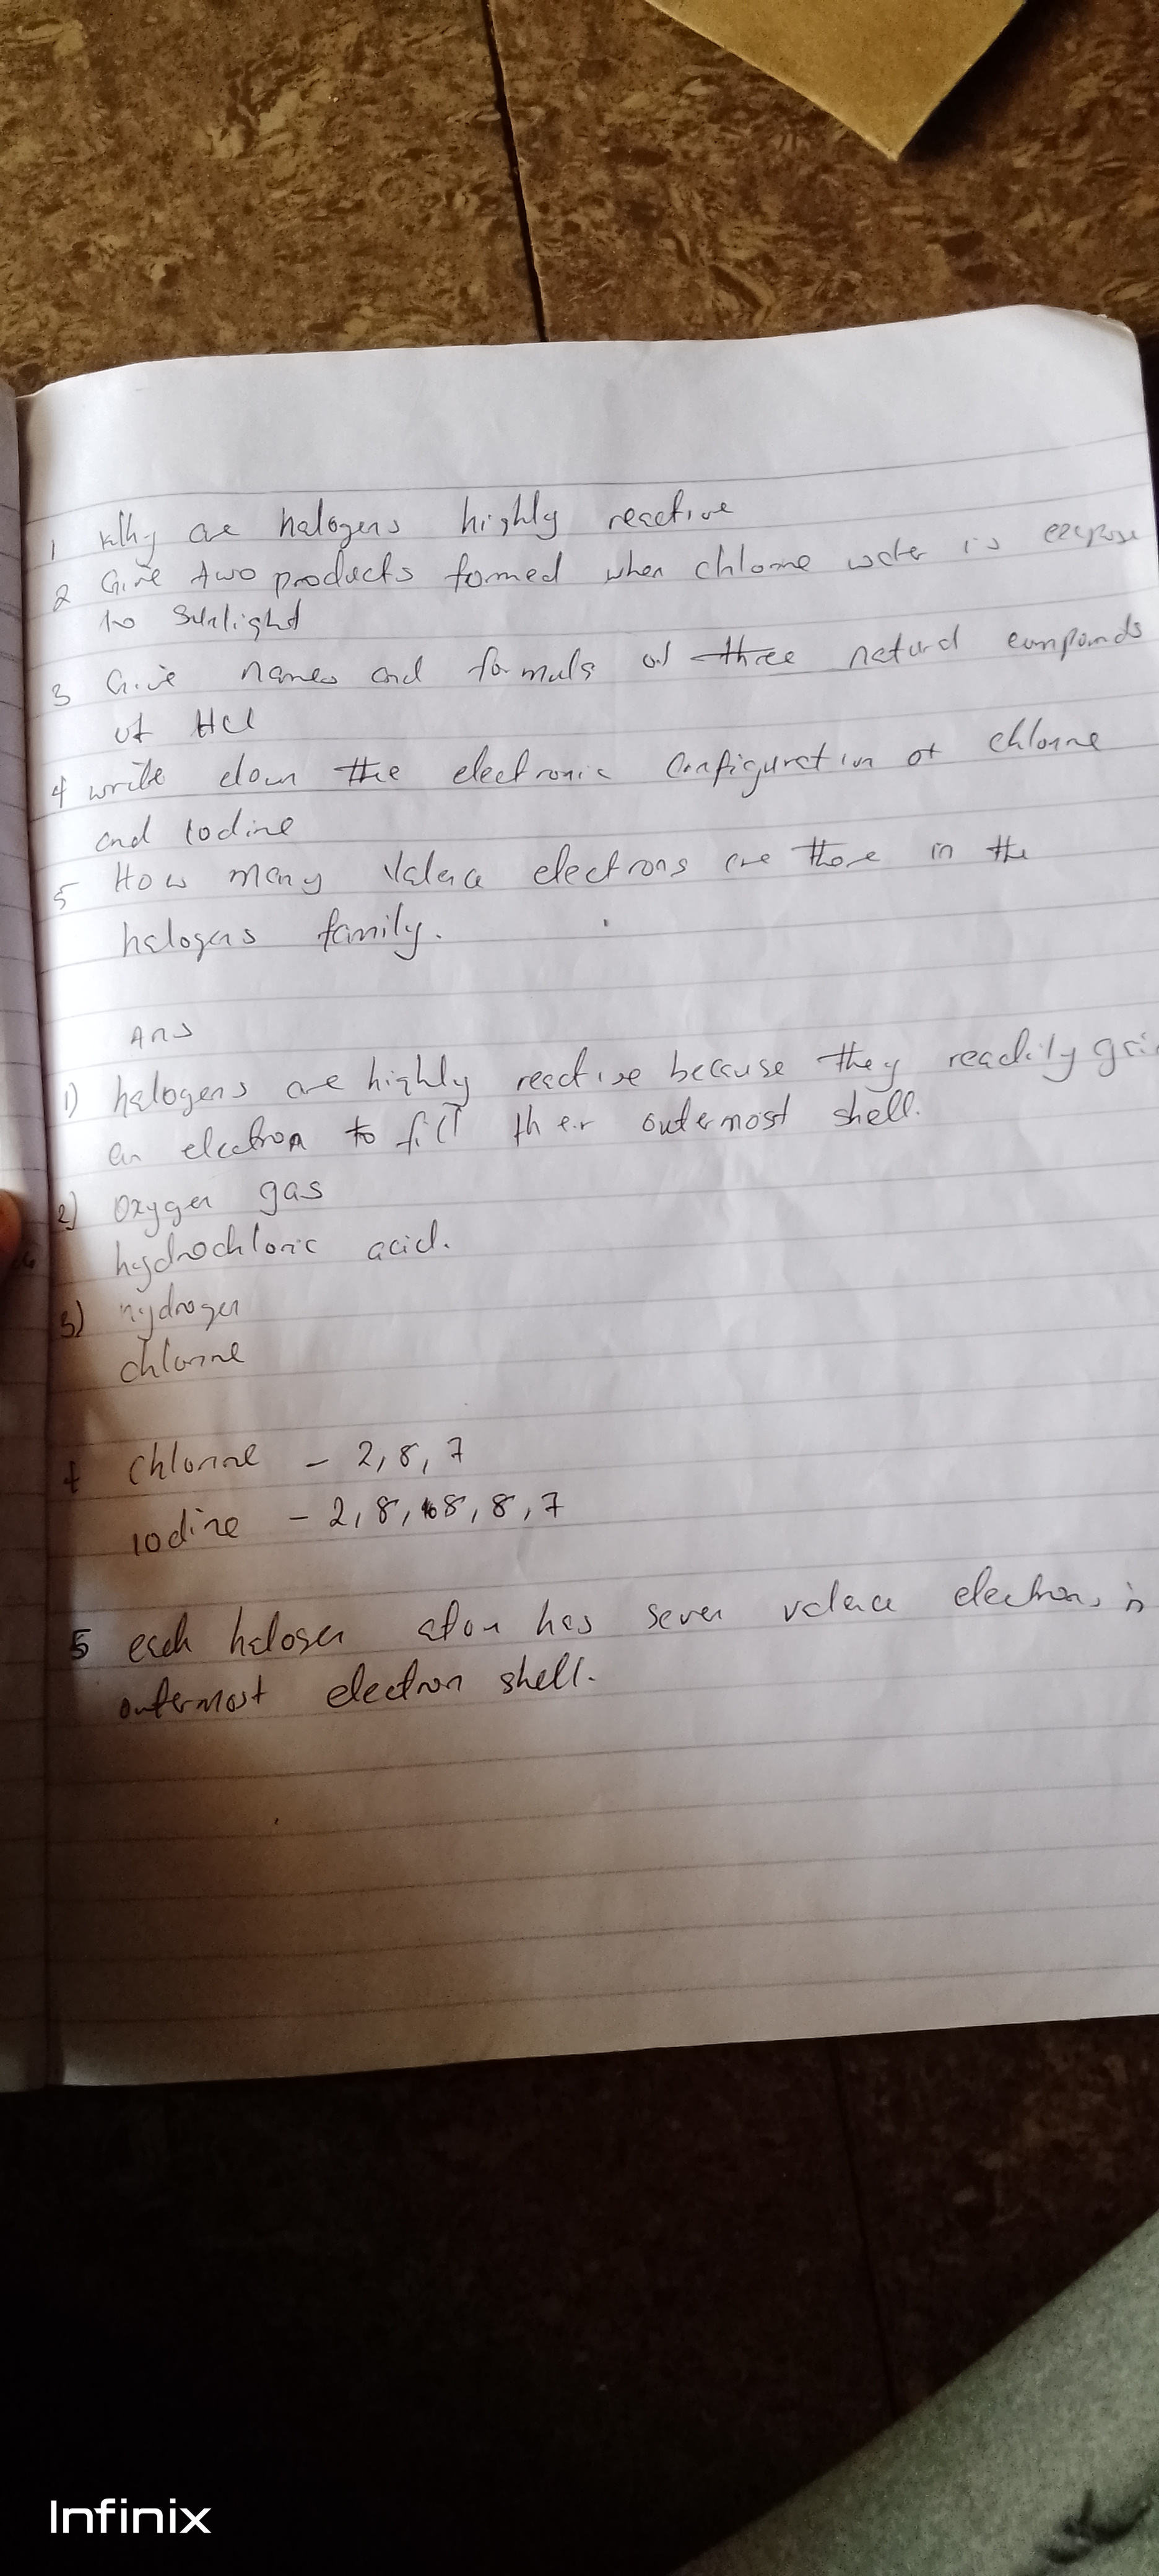 1 Why are halogens highly reactive
2 Give two products formed when chlorine water is expose
to sunlight
3 Give names and formula of three natural compounds
of HCl
4 write down the electronic configuration of chlorine
and Iodine
5 How many valence electrons are there in the
halogens family.
Ans
1) halogens are highly reactive because they readily gain
an electron to fill their outermost shell.
2) Oxygen gas
hydrochloric acid.
3) hydrogen
chlorine
4 Chlorine - 2, 8, 7
Iodine - 2, 8, 8, 8, 7
5 each halogen atom has seven valence electrons in
outermost electron shell.
Infinix